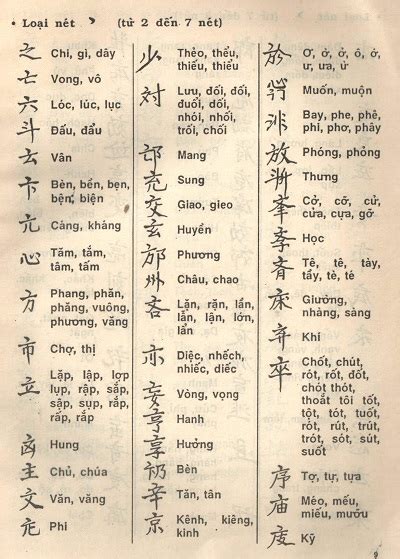 • Loại nét (từ 2 đến 7 nét)
之 Chi, gì, dây
亡 Vong, vô
六 Lóc, lúc, lục
斗 Đấu, đẩu
云 Vân
卞 Bèn, bển, bẹn,
bện, biện
亢 Càng, kháng
心 Tăm, tắm,
tâm, tấm
方 Phang, phăn,
phăng, vuông,
phương, văng
市 Chợ, thị
立 Lặp, lập, lợp
lụp, rập, sắp,
sập, sụp, rắp,
rấp, rắp
Hung
主 Chủ, chúa
文 Văn, văng
Phi
少 Thẻo, thểu,
thiếu, thiểu
対 Lưu, đối, đổi,
đuổi, dối,
nhói, nhối,
trối, chối
邙 Mang
充 Sung
交 Giao, gieo
玄 Huyền
邡 Phương
州 Châu, chao
吝 Lặn, rặn, lần,
lẫn, lận, lớn,
lẩn
亦 Diệc, nhếch,
nhiếc, diếc
妄 Vòng, vọng
亨 Hanh
享 Hưởng
Bèn
辛 Tăn, tân
京 Kênh, kiêng,
kinh
於 Ơ, ở, ờ, ô, ớ,
ư, ưa, ứ
Muốn, muộn
非 Bay, phe, phê,
phi, phơ, phây
放 Phóng, phỏng
Thưng
Cở, cỡ, cử,
cửa, cựa, gỡ
斈 Học
斉 Tê, tề, tày,
tầy, tè, té
床 Giường,
nhàng, sàng
弃 Khí
卒 Chốt, chút,
rót, rốt, đốt,
chót thót,
thoắt tôi tốt,
tột, tót, tuốt,
rớt, rút, trút,
trót, sót, sút,
suốt
序 Tợ, tự, tựa
庙 Méo, mếu,
miếu, mưỡu
庋 Kỹ
9